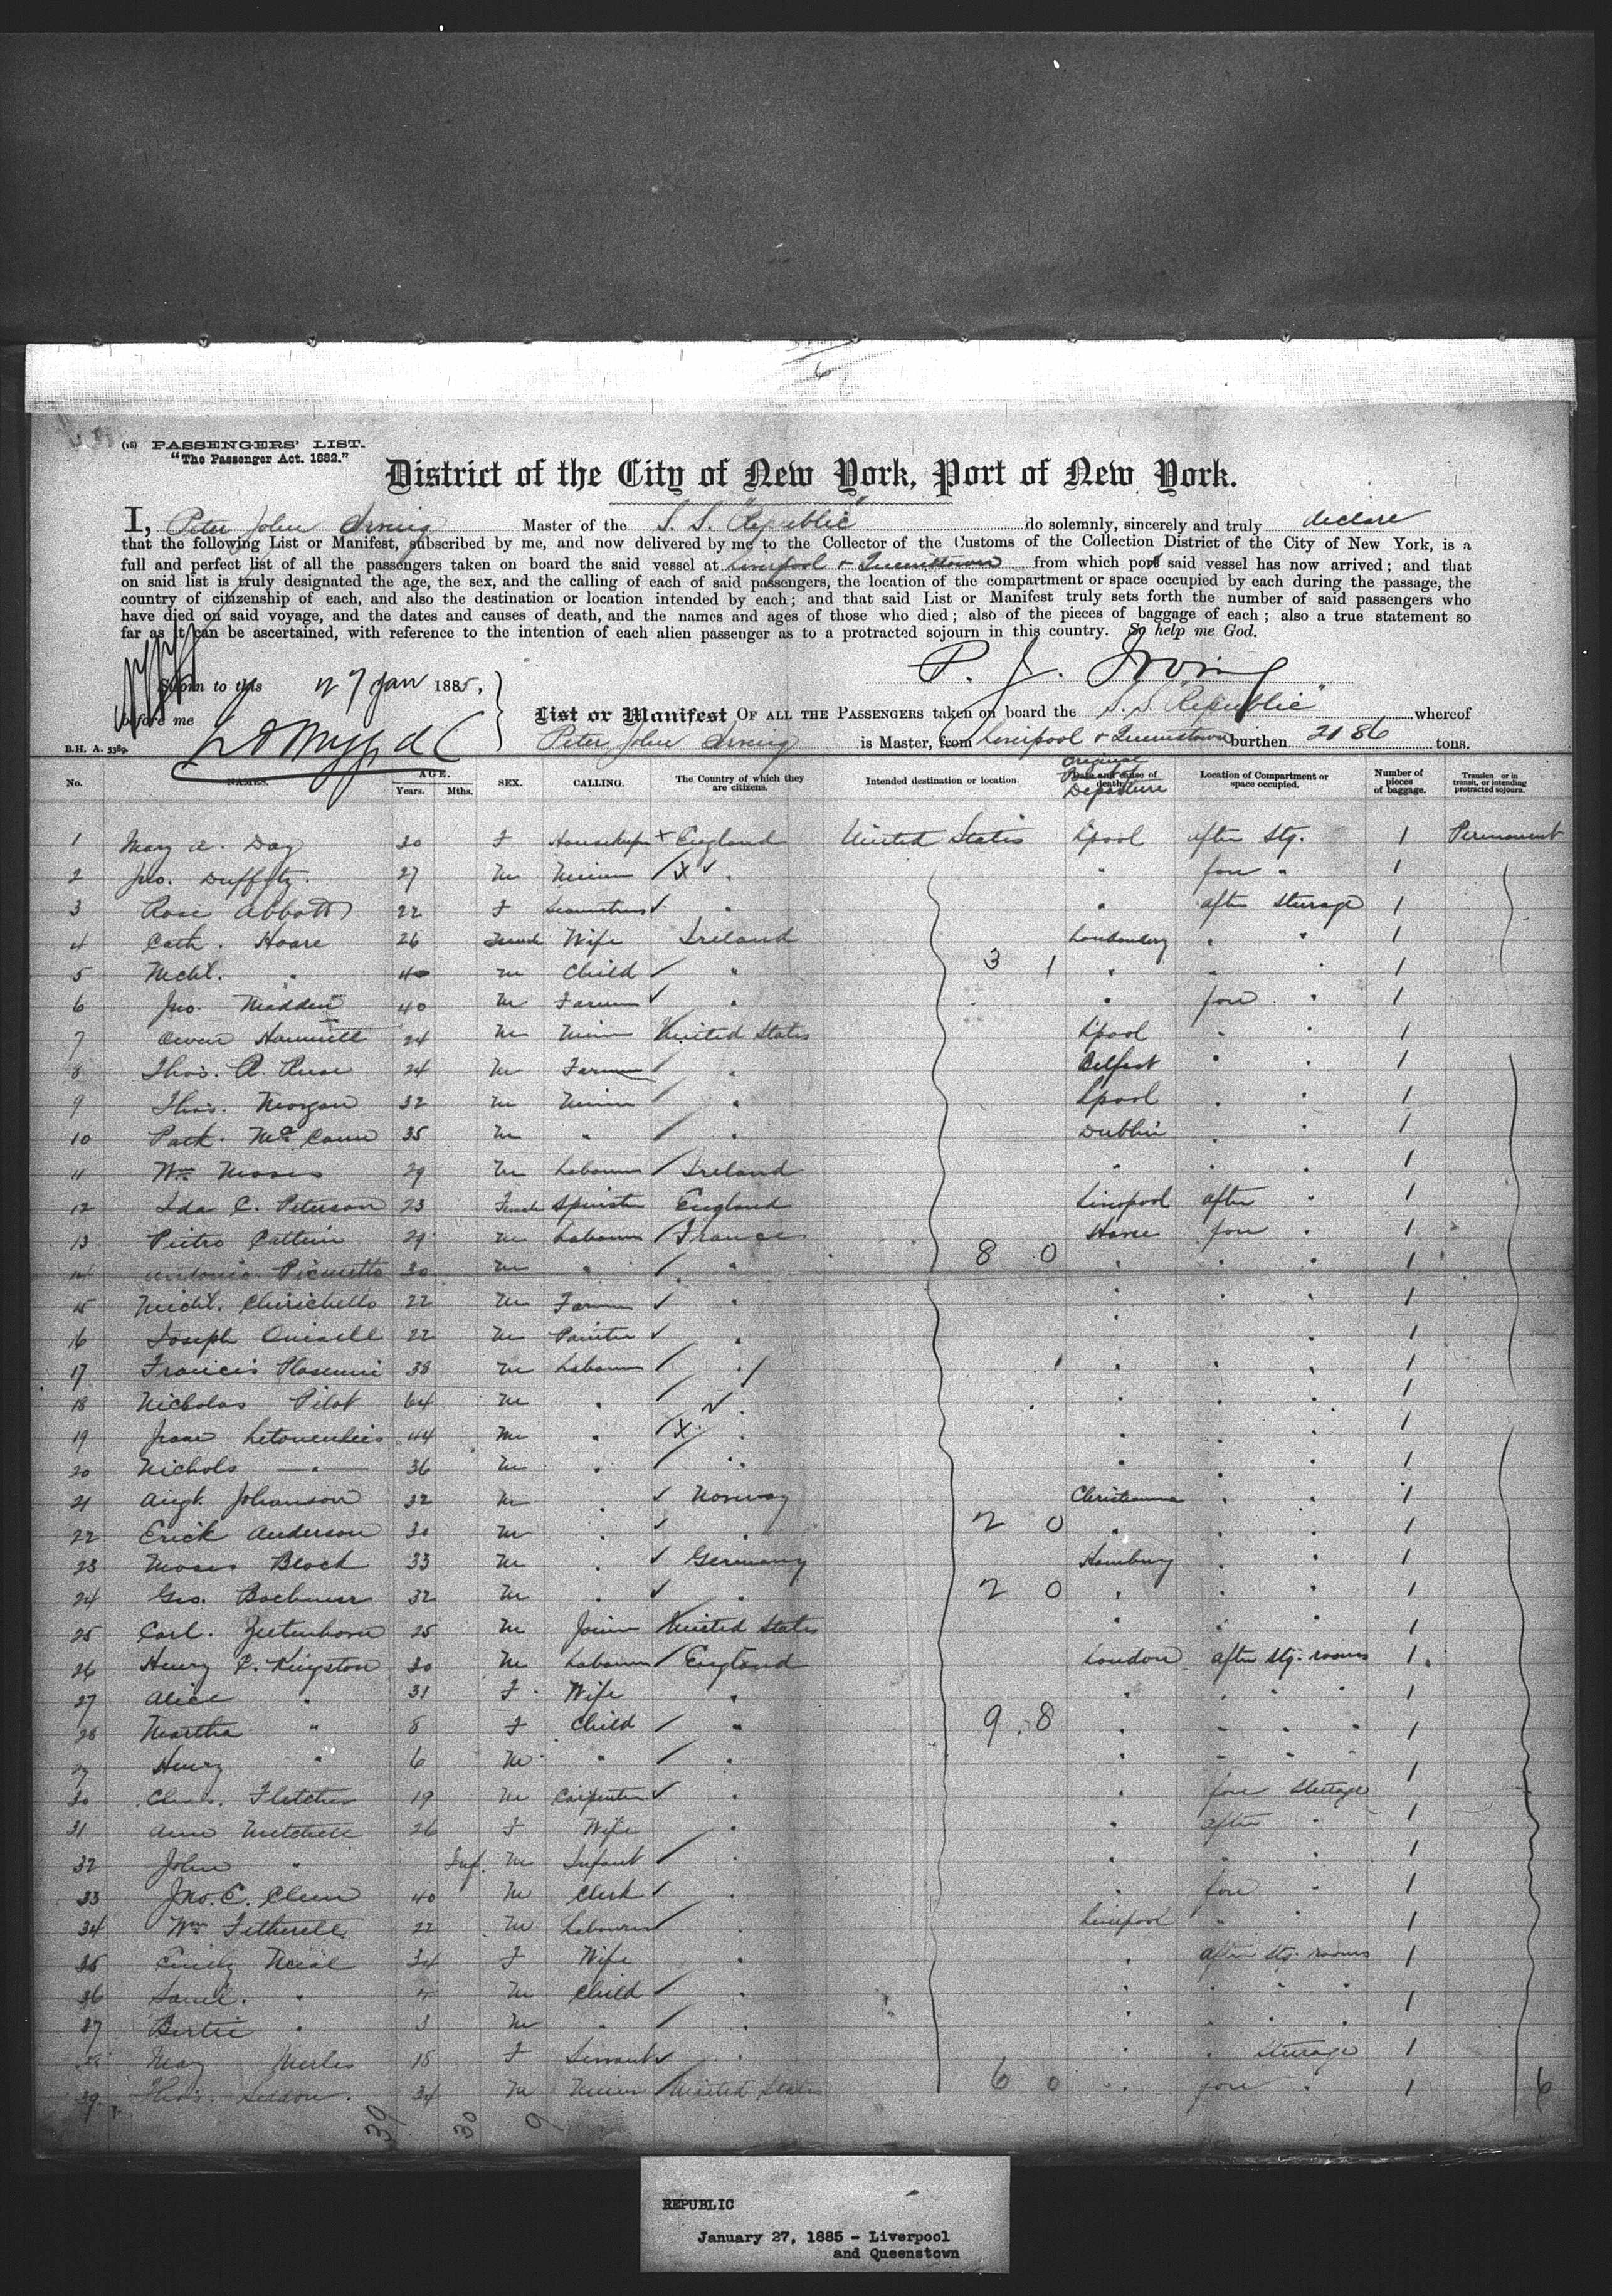 (18) PASSENGERS' LIST.
"The Passenger Act. 1882."
District of the City of New York, Port of New York.
I, Peter John Irving Master of the S. S. "Republic" do solemnly, sincerely and truly declare
that the following List or Manifest, subscribed by me, and now delivered by me to the Collector of the Customs of the Collection District of the City of New York, is a
full and perfect list of all the passengers taken on board the said vessel at Liverpool & Queenstown from which port said vessel has now arrived; and that
on said list is truly designated the age, the sex, and the calling of each of said passengers, the location of the compartment or space occupied by each during the passage, the
country of citizenship of each, and also the destination or location intended by each; and that said List or Manifest truly sets forth the number of said passengers who
have died on said voyage, and the dates and causes of death, and the names and ages of those who died; also of the pieces of baggage of each; also a true statement so
far as it can be ascertained, with reference to the intention of each alien passenger as to a protracted sojourn in this country. So help me God.
P. J. Irving
Sworn to this 27 Jan 1885,
before me
List or Manifest OF ALL THE PASSENGERS taken on board the S. S. "Republic" whereof
B.H. A. 3389. Peter John Irving is Master, from Liverpool & Queenstown burthen 2186 tons.
No. NAMES. AGE. Years. Mths. SEX. CALLING. The Country of which they are citizens. Intended destination or location. Original Departure Date and cause of death. Location of Compartment or space occupied. Number of pieces of baggage. Transien or in transit, or intending protracted sojourn.
1 Mary A. Day 30 F England United States Lpool after Stg. 1 Permanent
2 Jno. 27 M " " fore " 1
3 Rose Abbott 22 F " " after Steerage 1
4 Cath. Hoare 26 Female Wife Ireland Londonderry " " 1
5 Michl. " 4 M Child " " " " 1
6 Jno. Madden 40 M Farmer " " fore " 1
7 Owen 24 M Miner United States Lpool " " 1
8 Thos. R. 24 M Farmer " Belfast " " 1
9 Thos. Morgan 32 M Miner " Lpool " " 1
10 Patk. McCann 35 M " " Dublin " " 1
11 Wm Moses 29 M Labourer Ireland " " " 1
12 Ida C. Peterson 23 Female Spinster England Liverpool after " 1
13 Pietro 29 M Labourer France Havre fore " 1
14 Antonio 30 M " " " " " 1
15 Michl. Chirichello 22 M Farmer " " " " 1
16 Joseph 22 M Painter " " 1
17 Francis 38 M Labourer " " " " 1
18 Nicholas Pilot 64 M " " " " " 1
19 44 M " " " " 1
20 Nichols " 36 M " " " " " 1
21 Augt. Johanson 32 M " Norway Christiania " " 1
22 Erick Anderson 30 M " " " " " 1
23 Moses Block 33 M " Germany Hamburg " " 1
24 Geo. 32 M " " " " " 1
25 Carl. 25 M Joiner United States " " " 1
26 Henry C. Kingston 30 M Labourer England London after Stg. rooms 1
27 Alice " 31 F Wife " " " " " 1
28 Martha " 8 F Child " " " " " 1
29 Henry " 6 M " " " " " " 1
30 Chas. Fletcher 19 M Carpenter " " fore Steerage 1
31 Ann Mitchell 26 F Wife " " after " 1
32 John " Inf. M Infant " " " " 1
33 Jno. E. 40 M Clerk " " fore " 1
34 Wm 22 M Labourer " Liverpool " " 1
35 Emily 34 F Wife " " after Stg. rooms 1
36 Saml. " 4 M Child " " " " " 1
37 Bertie " 3 M " " " " " "
38 May 18 F Servant " " " Steerage 1
39 Thos. Seddon 34 M Miner United States " fore " 1
3 1
8 0
2 0
2 0
9 8
6 0
6
39 30 9
REPUBLIC
January 27, 1885 - Liverpool
and Queenstown